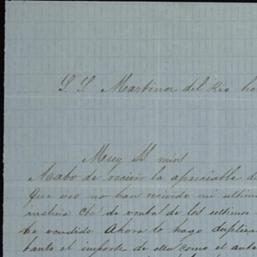 S. S. Martinez del Rio he
Muy SS mios
Acabo de recivir la apreciable d
Que veo no han recivido mi ultim
de venta de los ultimos
he vendido Ahora lo hago duplica
tante el importe de ello como el ante